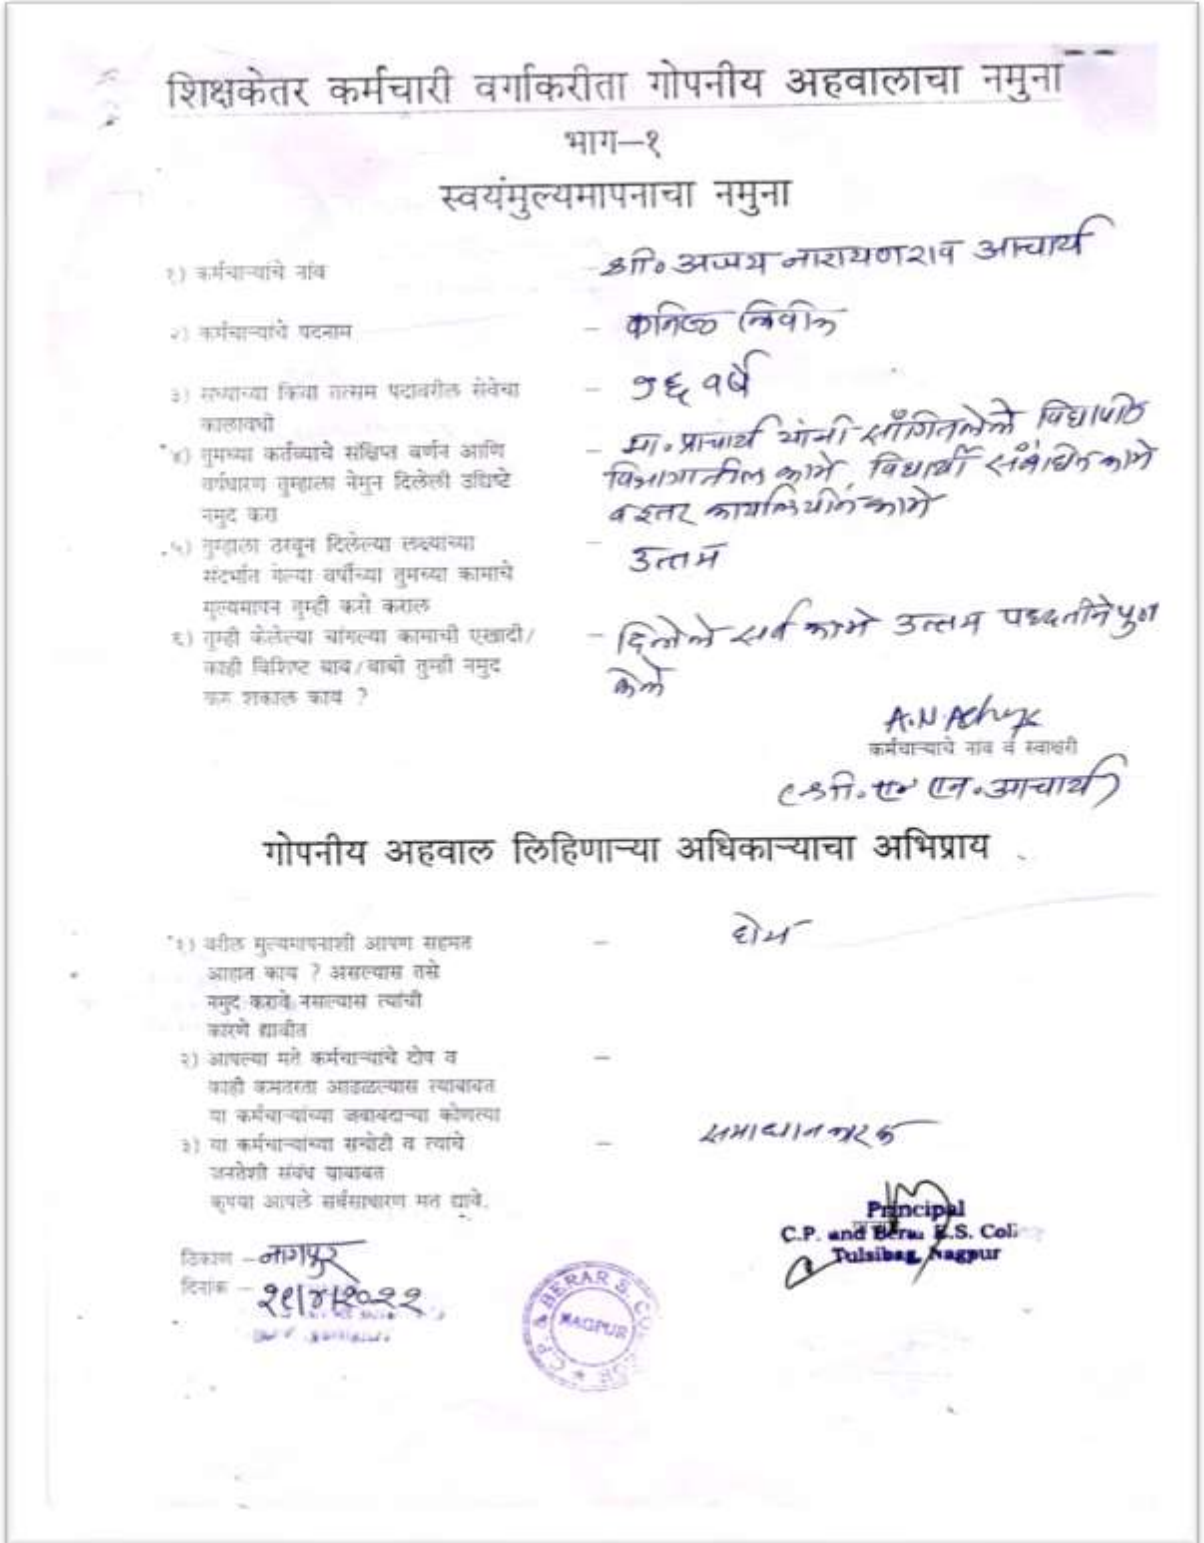 शिक्षकेतर कर्मचारी वर्गाकरीता गोपनीय अहवालाचा नमुना
भाग–१
स्वयंमुल्यमापनाचा नमुना
१) कर्मचाऱ्यांचे नांव - श्री. अजय नारायणराव आचार्य
२) कर्मचाऱ्यांचे पदनाम – कनिष्ठ लिपीक
३) सध्याच्या किंवा तत्सम पदावरील सेवेचा – १६ वर्षे
कालावधी
४) तुमच्या कर्तव्याचे संक्षिप्त वर्णन आणि – मा. प्राचार्य यांनी सांगितलेले विद्यापीठ
वर्षधारण तुम्हाला नेमुन दिलेली उद्दिष्टे विभागातील कामे, विद्यार्थी संबंधित कामे
नमुद करा व इतर कार्यालयीन कामे
५) तुम्हाला ठरवून दिलेल्या लक्ष्यांच्या – उत्तम
संदर्भात गेल्या वर्षीच्या तुमच्या कामाचे
मुल्यमापन तुम्ही कसे कराल
६) तुम्ही केलेल्या चांगल्या कामाची एखादी/ – दिलेले सर्व कामे उत्तम पध्दतीने पुर्ण
काही विशिष्ट बाब/बाबी तुम्ही नमुद केले
करु शकाल काय ?
A.N.Achary
कर्मचाऱ्याचे नांव व स्वाक्षरी
(श्री. ए. एन. आचार्य)
गोपनीय अहवाल लिहिणाऱ्या अधिकाऱ्याचा अभिप्राय
१) वरील मुल्यमापनाशी आपण सहमत – होय
आहात काय ? असल्यास तसे
नमुद करावे नसल्यास त्यांची
कारणे द्यावीत
२) आपल्या मते कर्मचाऱ्यांचे दोष व –
काही कमतरता आढळल्यास त्याबाबत
या कर्मचाऱ्यांच्या जवाबदाऱ्या कोणत्या
३) या कर्मचाऱ्यांच्या सचोटी व त्यांचे – समाधानकारक
जनतेशी संबंध याबाबत
कृपया आपले सर्वसाधारण मत द्यावे.
Principal
C.P. and Berar E.S. Coll
Tulsibag, Nagpur
ठिकाण – नागपुर
दिनांक – २९/४/२०२२
C.P. & BERAR S. CO
NAGPUR